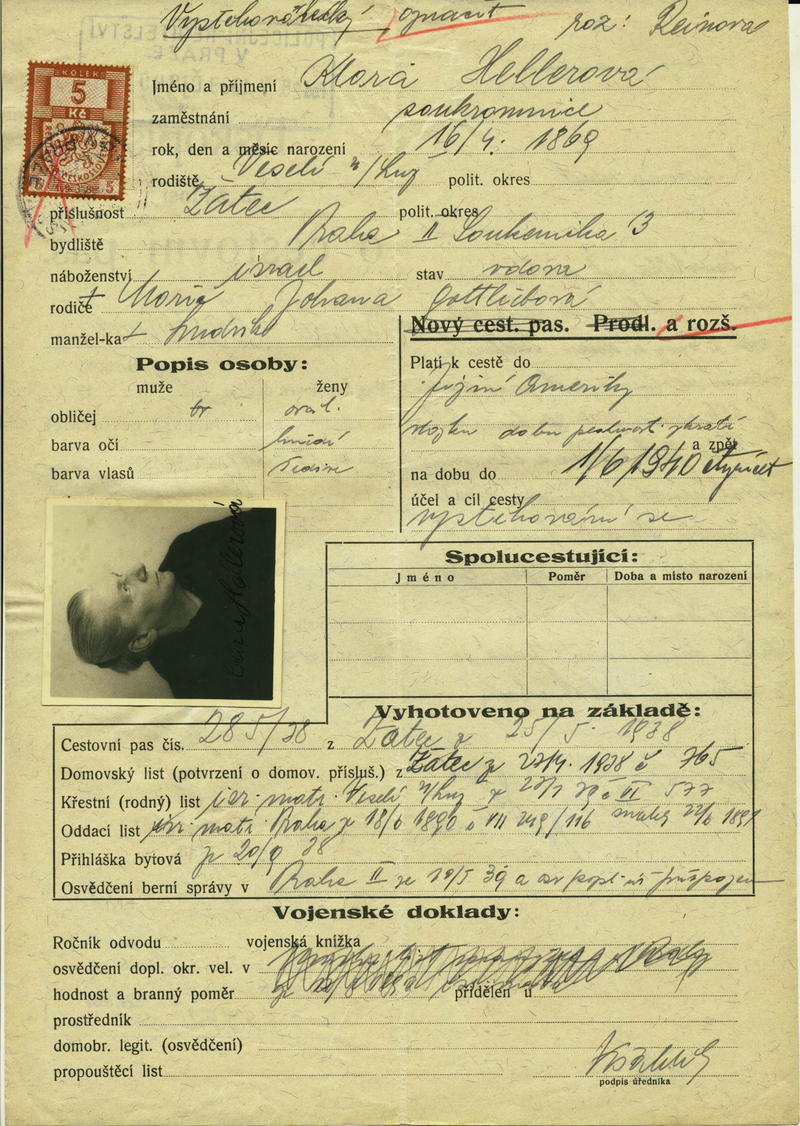 Vystěhovalecký označit roz: Reinova
KOLEK
5
Kč
1938
Jméno a příjmení Klara Hellerová
zaměstnání soukromnice
rok, den a měsíc narození 16/4. 1869
rodiště Veselí n/Luž polit. okres
příslušnost Žatec polit. okres
bydliště Praha II Soukenická 13
náboženství israel stav vdova
rodiče Marie Johana Gottliebová
manžel-ka Ludvík
Nový cest. pas. Prodl. a rozš.
Popis osoby:
muže ženy
obličej ovál.
barva očí hnědé
barva vlasů šedivé
Platí k cestě do
Jižní Ameriky
dobu
a zpět
na dobu do 1/6/1940 čtyřicet
účel a cíl cesty
vystěhování se
Clara Hellerová
Spolucestující:
Jméno Poměr Doba a místo narození
Vyhotoveno na základě:
Cestovní pas čís. 285/38 z Žatec z 25/5. 1938
Domovský list (potvrzení o domov. přísluš.) z Žatec z 27/4. 1938 č 765
Křestní (rodný) list isr. matr. Veselí n/Luž z VI 577
Oddací list isr. matr. Praha z 18/6 1890 VII 249/116 1891
Přihláška bytová z 20/9 38
Osvědčení berní správy v Praha II ze 19/5 39 a
Vojenské doklady:
Ročník odvodu vojenská knížka
osvědčení dopl. okr. vel. v
hodnost a branný poměr přidělen u
prostředník
domobr. legit. (osvědčení)
propouštěcí list
podpis úředníka